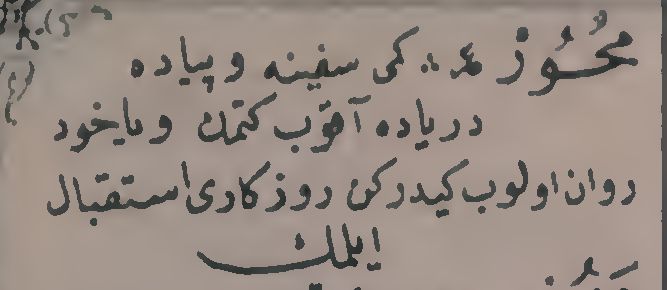 مُحُوز ء م كمى سفينه و پياده
درياده آقوب كتمك و ياخود
روان اولوب كيدركن روزكارى استقبال
ايلمك